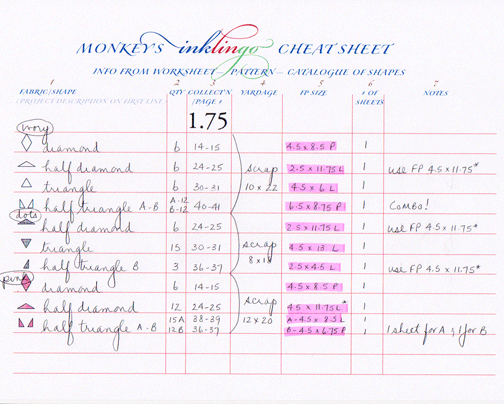 MONKEYS inklingo CHEAT SHEET
INFO FROM WORKSHEET – PATTERN – CATALOGUE OF SHAPES
1 2 3 4 5 6 7
FABRIC/SHAPE QTY COLLECT'N YARDAGE FP SIZE # OF NOTES
(PROJECT DESCRIPTION ON FIRST LINE) /PAGE # SHEETS
1.75
ivory
diamond 6 14-15 4.5 x 8.5 P 1
half diamond 6 24-25 scrap 2.5 x 11.75 L 1 use FP 4.5 x 11.75*
triangle 6 30-31 10 x 22 4.5 x 6 L 1
half triangle A-B A-12 B-12 40-41 6.5 x 8.75 P 1 COMBO!
dots
half diamond 6 24-25 2.5 x 11.75 L 1 use FP 4.5 x 11.75*
triangle 15 30-31 scrap 4.5 x 13 L 1
half triangle B 3 36-37 8 x 18 2.5 x 4.5 L 1 use FP 4.5 x 11.75*
pink
diamond 6 14-15 4.5 x 8.5 P 1
half diamond 12 24-25 scrap 4.5 x 11.75 L* 1
half triangle A-B 15A 38-39 12 x 20 A-4.5 x 8.5 L 1
12B 36-37 B-4.5 x 6.75 P 1 1 sheet for A & 1 for B